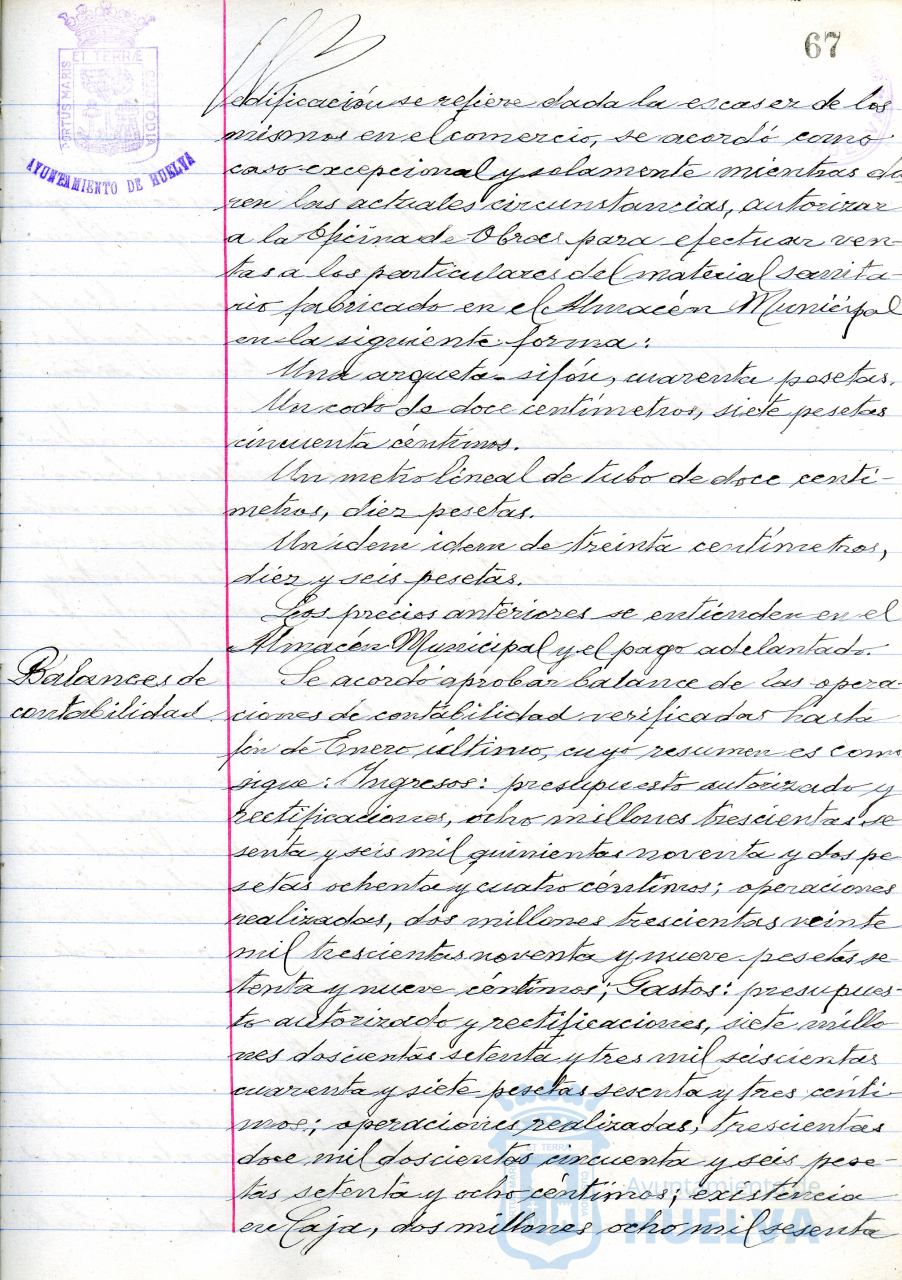 67
PORTUS MARIS
ET TERRÆ
CUSTODIA
AYUNTAMIENTO DE HUELVA
edificación se refiere dada la escasez de los
mismos en el comercio, se acordó como
caso excepcional y solamente mientras du
ren las actuales circunstancias, autorizar
a la Oficina de Obras para efectuar ven-
tas a los particulares del material sanita-
rio fabricado en el Almacén Municipal
en la siguiente forma:
Una arqueta-sifón, cuarenta pesetas.
Un codo de doce centímetros, siete pesetas
cincuenta céntimos.
Un metro lineal de tubo de doce centí-
metros, diez pesetas.
Un idem idem de treinta centímetros,
diez y seis pesetas.
Los precios anteriores se entienden en el
Almacén Municipal y el pago adelantado.
Balances de
contabilidad.
Se acordó aprobar balance de las opera-
ciones de contabilidad verificadas hasta
fin de Enero último, cuyo resumen es como
sigue: Ingresos: presupuesto autorizado y
rectificaciones, ocho millones trescientas se
senta y seis mil quinientas noventa y dos pe
setas ochenta y cuatro céntimos; operaciones
realizadas, dos millones trescientas veinte
mil trescientas noventa y nueve pesetas se-
tenta y nueve céntimos; Gastos: presupues-
to autorizado y rectificaciones, siete millo
nes doscientas setenta y tres mil seiscientas
cuarenta y siete pesetas sesenta y tres cénti-
mos; operaciones realizadas, trescientas
doce mil doscientas cincuenta y seis pese-
tas setenta y ocho céntimos; existencia
en Caja, dos millones ocho mil sesenta
Ayuntamiento de
HUELVA